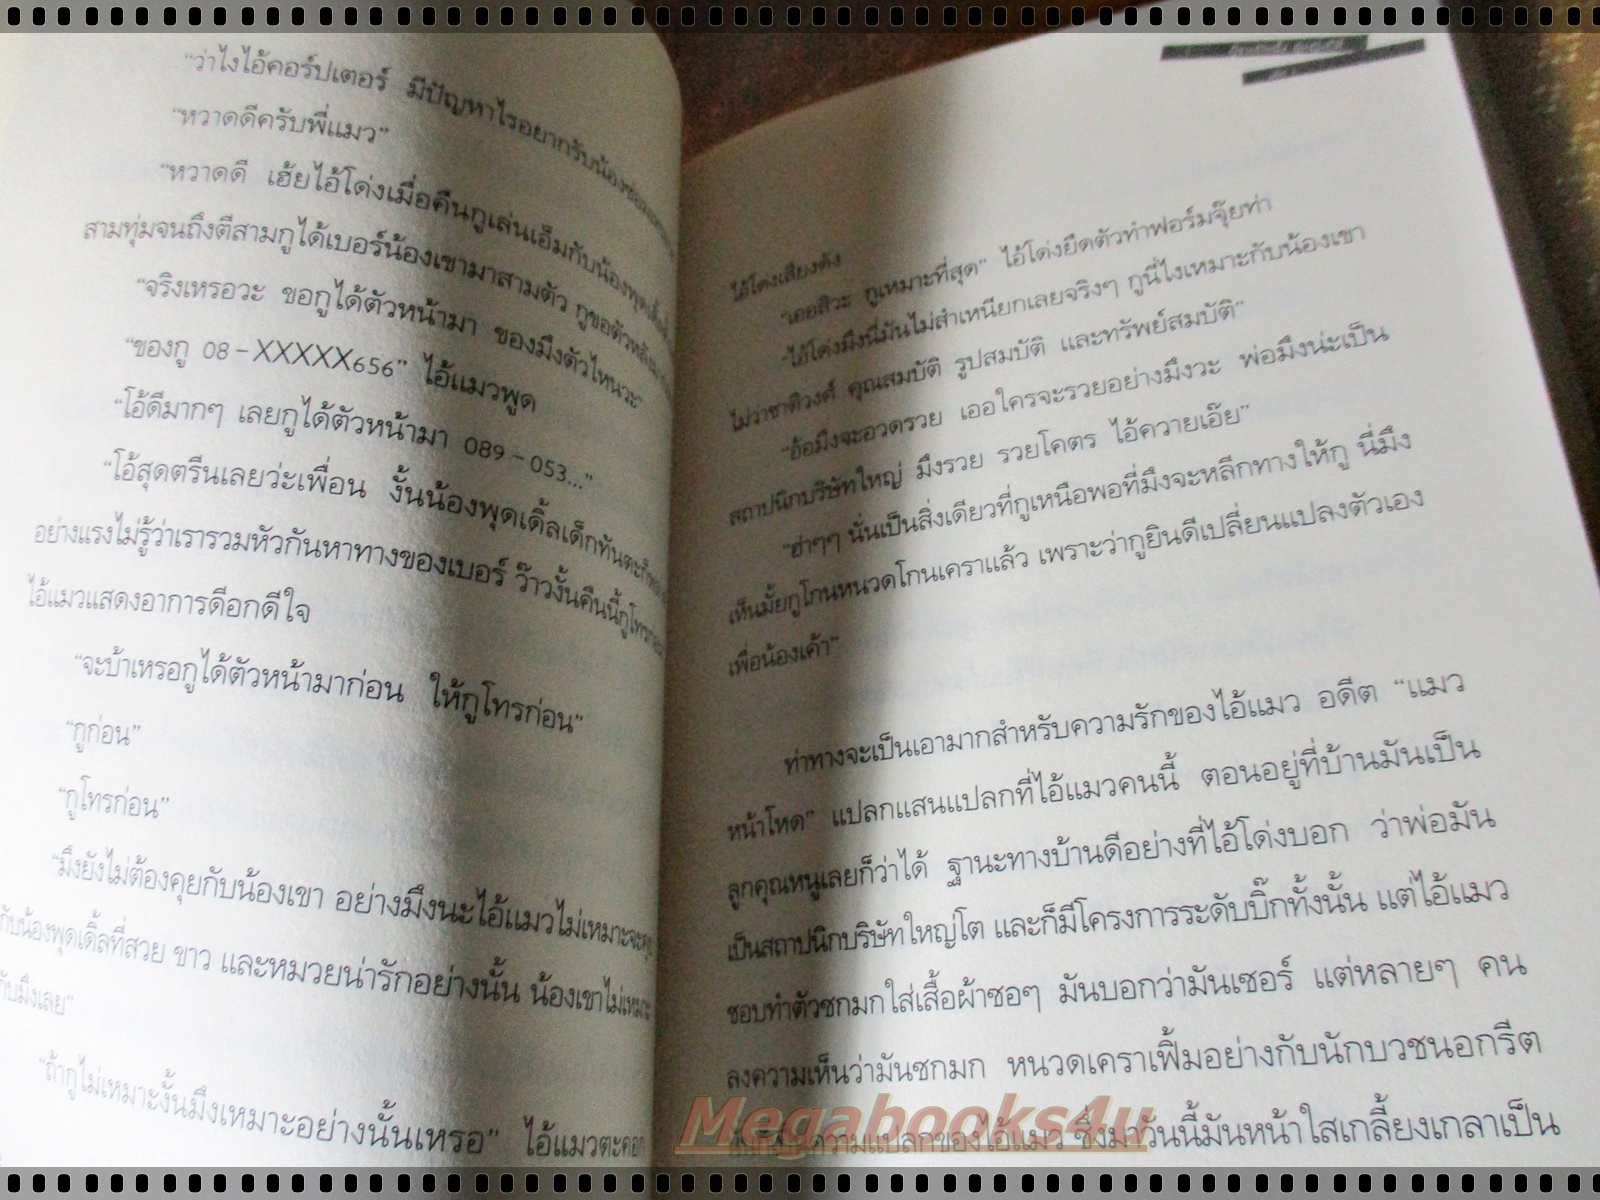 “ว่าไงไอ้คอร์ปเตอร์ มีปัญหาไรอยากรับน้อง
“หวาดดีครับพี่แมว”
“หวาดดี เฮ้ยไอ้โด่งเมื่อคืนกูเล่นเอ็มกับน้องพุดเดิ้ล
สามทุ่มจนถึงตีสามกูได้เบอร์น้องเขามาสามตัว กูขอตัวหลัง
“จริงเหรอวะ ขอกูได้ตัวหน้ามา ของมึงตัวไหนวะ”
“ของกู 08-XXXXX656” ไอ้แมวพูด
“โอ้ดีมากๆ เลยกูได้ตัวหน้ามา 089-053...”
“โอ้สุดตรีนเลยว่ะเพื่อน งั้นน้องพุดเดิ้ลเด็กทันตะ
อย่างแรงไม่รู้ว่าเรารวมหัวกันหาทางของเบอร์ ว๊าวงั้นคืนนี้กูโทร
ไอ้แมวแสดงอาการดีอกดีใจ
“จะบ้าเหรอกูได้ตัวหน้ามาก่อน ให้กูโทรก่อน”
“กูก่อน”
“กูโทรก่อน”
“มึงยังไม่ต้องคุยกับน้องเขา อย่างมึงนะไอ้แมวไม่เหมาะจะ
กับน้องพุดเดิ้ลที่สวย ขาว และหมวยน่ารักอย่างนั้น น้องเขาไม่เหมาะ
กับมึงเลย”
“ถ้ากูไม่เหมาะงั้นมึงเหมาะอย่างนั้นเหรอ” ไอ้แมวตะคอก
ไอ้โด่งเสียงดัง
“เออสิวะ กูเหมาะที่สุด” ไอ้โด่งยืดตัวทำฟอร์มจุ๊ยท่า
“ไอ้โด่งมึงนี่มันไม่สำเหนียกเลยจริงๆ กูนี่ไงเหมาะกับน้องเขา
ไม่ว่าชาติวงศ์ คุณสมบัติ รูปสมบัติ และทรัพย์สมบัติ”
“อ้อมึงจะอวดรวย เออใครจะรวยอย่างมึงวะ พ่อมึงน่ะเป็น
สถาปนิกบริษัทใหญ่ มึงรวย รวยโคตร ไอ้ควายเอ๊ย”
“ฮ่าๆๆ นั่นเป็นสิ่งเดียวที่กูเหนือพอที่มึงจะหลีกทางให้กู นี่มึง
เห็นมั้ยกูโกนหนวดโกนเคราแล้ว เพราะว่ากูยินดีเปลี่ยนแปลงตัวเอง
เพื่อน้องเค้า”
ท่าทางจะเป็นเอามากสำหรับความรักของไอ้แมว อดีต “แมว
หน้าโหด” แปลกแสนแปลกที่ไอ้แมวคนนี้ ตอนอยู่ที่บ้านมันเป็น
ลูกคุณหนูเลยก็ว่าได้ ฐานะทางบ้านดีอย่างที่ไอ้โด่งบอก ว่าพ่อมัน
เป็นสถาปนิกบริษัทใหญ่โต และก็มีโครงการระดับบิ๊กทั้งนั้น แต่ไอ้แมว
ชอบทำตัวซกมกใส่เสื้อผ้าซอๆ มันบอกว่ามันเซอร์ แต่หลายๆ คน
ลงความเห็นว่ามันซกมก หนวดเคราเฟิ้มอย่างกับนักบวชนอกรีต
ความแปลกของไอ้แมว ซึ่งมาวันนี้มันหน้าใสเกลี้ยงเกลาเป็น
Megabooks4u